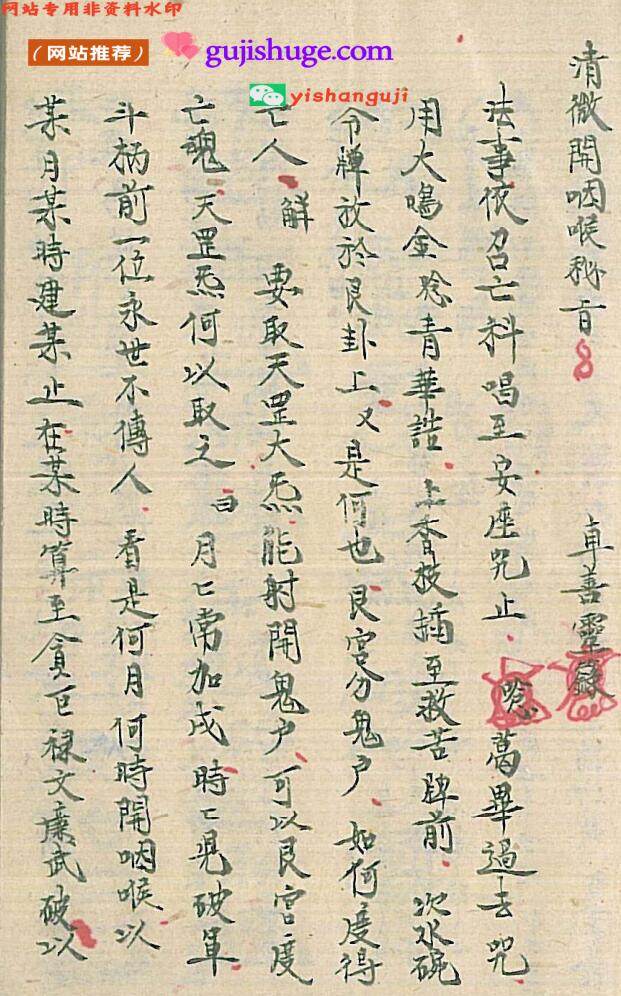 网站专用非资料水印
(网站推荐)
gujishuge.com
yishanguji
清微開咽喉秘旨 卓善靈錄
法事依召亡科唱至安座咒止 唸萬畢過去咒
用大鳴金唸青華誥 上香技插至救苦牌前 次水碗
令牌放於艮卦上 又是何也 艮宮分鬼户 如何度得
亡人 解 要取天罡大炁能射開鬼户 可以艮宮度
亡魂 天罡炁何以取之 曰 月匕常加戍 時匕見破軍
斗柄前一位永世不傳人 看是何月何時開咽喉 以
某月某時建某 止在某時算至貪巨禄文廉武破 以